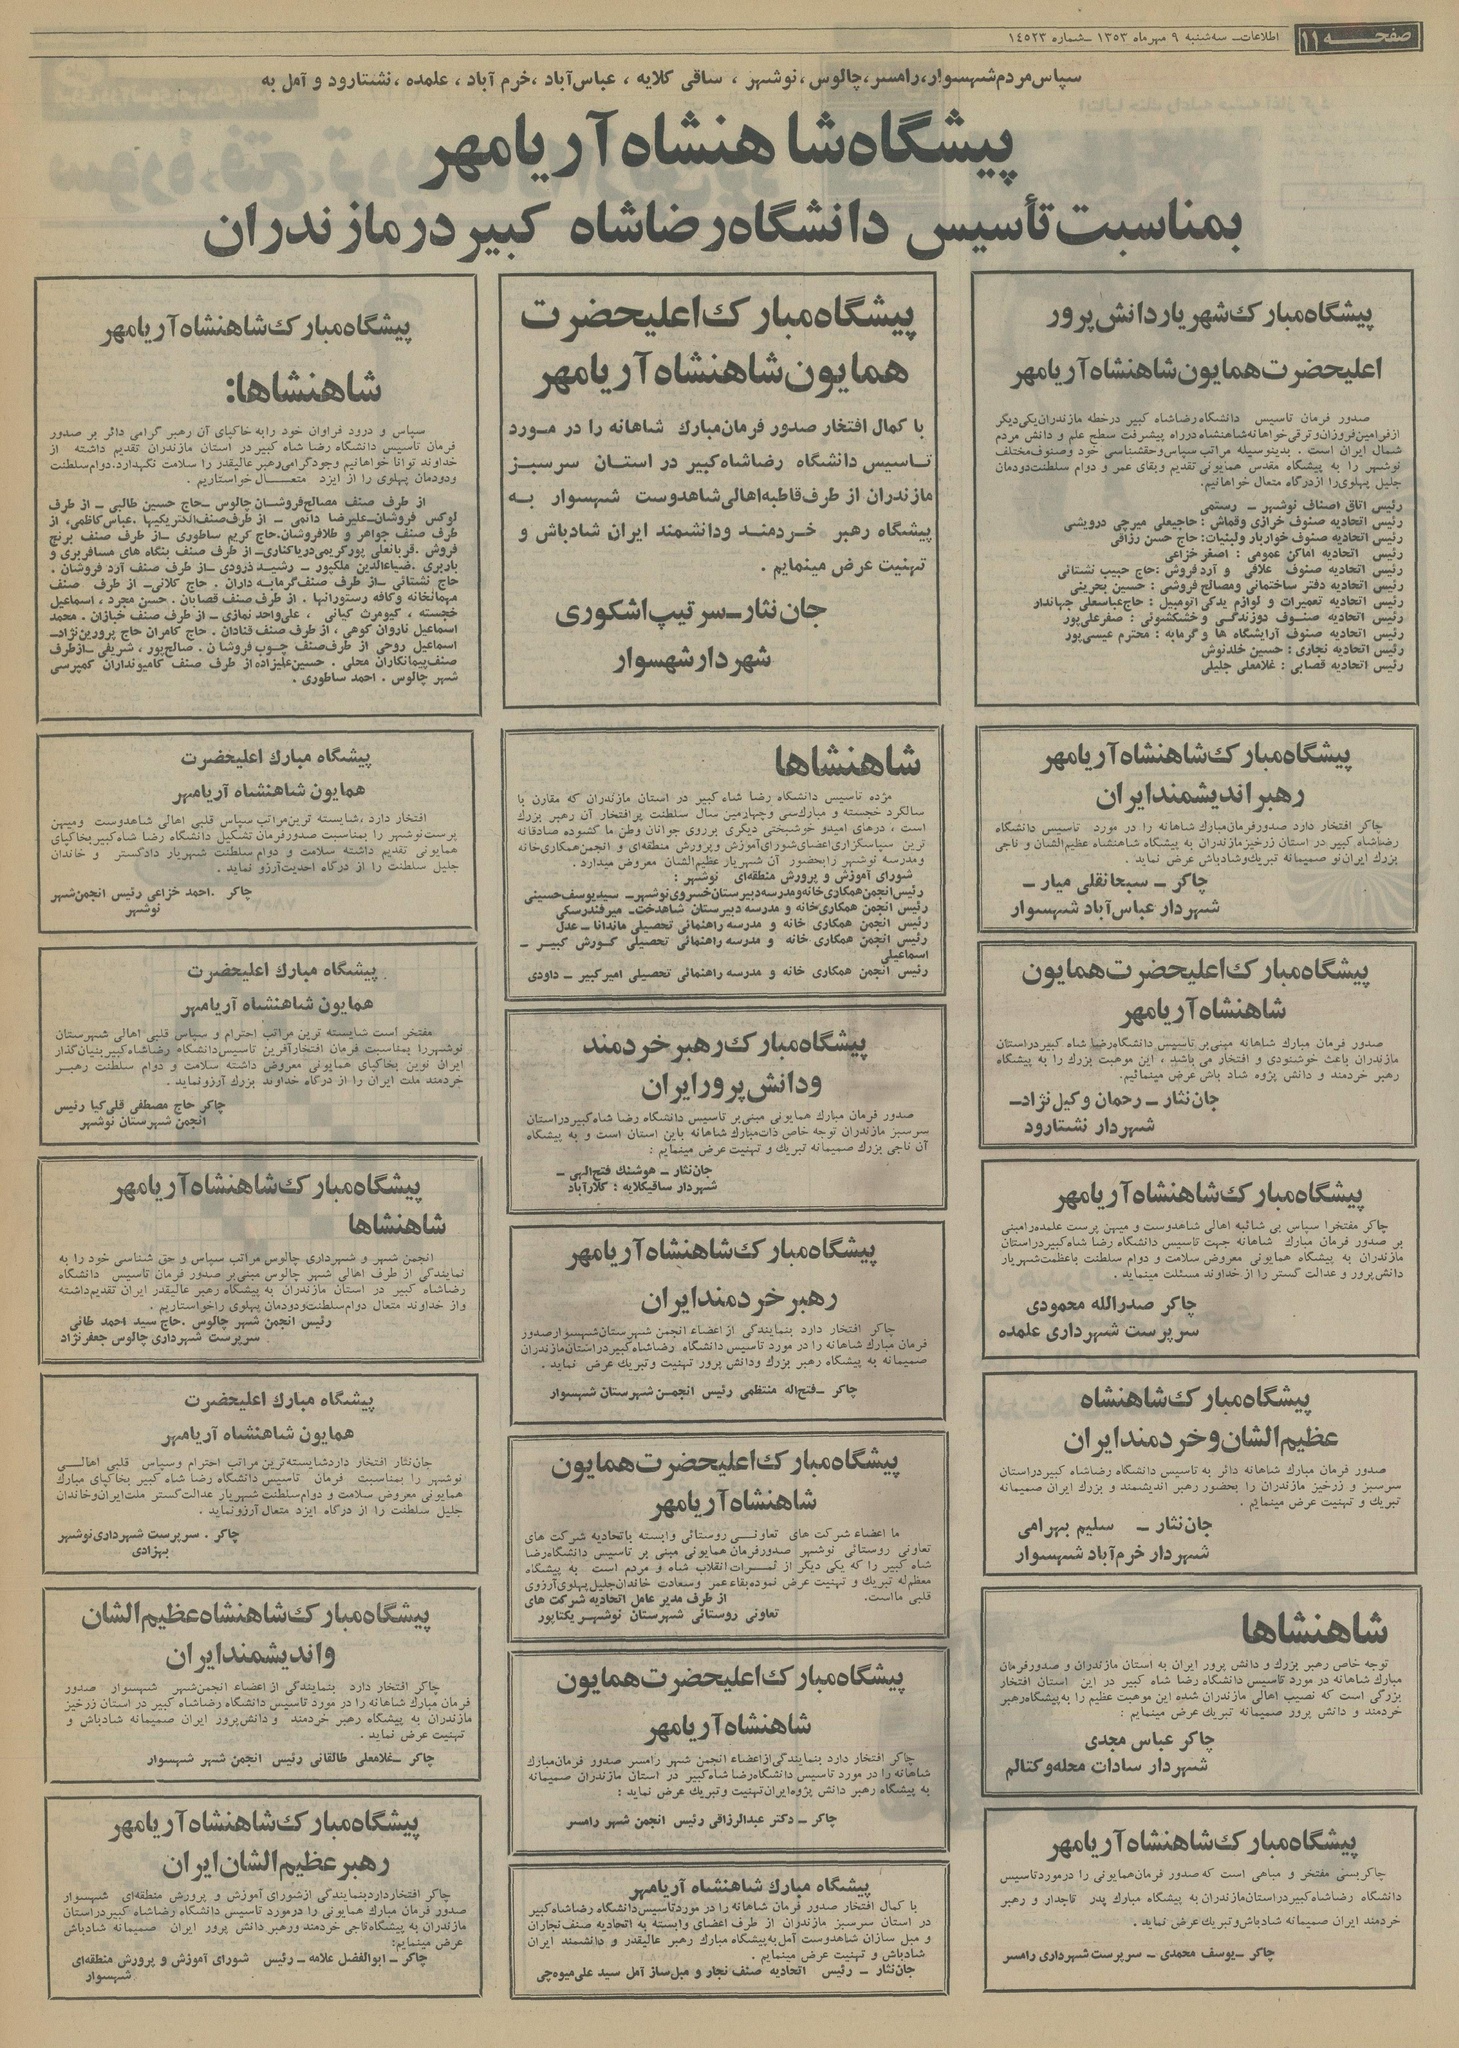 صفحه ۱۱
اطلاعات ـ سه‌شنبه ۹ مهرماه ۱۳۵۳ ـ شماره ۱۴۵۲۳
سپاس مردم شهسوار، رامسر، چالوس، نوشهر، ساقی کلایه، عباس‌آباد، خرم آباد، علمده، نشتارود و آمل به
پیشگاه شاهنشاه آریامهر
بمناسبت تأسیس دانشگاه رضاشاه کبیر در مازندران
پیشگاه مبارک شهریار دانش پرور
اعلیحضرت همایون شاهنشاه آریامهر
صدور فرمان تاسیس دانشگاه رضاشاه کبیر درخطه مازندران یکی دیگر
از فرامین فروزان و ترقی خواهانه شاهنشاه در راه پیشرفت سطح علم و دانش مردم
شمال ایران است . بدینوسیله مراتب سپاس و حقشناسی خود و صنوف مختلف
نوشهر را به پیشگاه مقدس همایونی تقدیم و بقای عمر و دوام سلطنت دودمان
جلیل پهلوی را از درگاه متعال خواهانیم.
رئیس اتاق اصناف نوشهر ـ رستمی
رئیس اتحادیه صنوف خرازی و قماش : حاجیعلی میرچی درویشی
رئیس اتحادیه صنوف خواربار و لبنیات: حاج حسن رزاقی
رئیس اتحادیه اماکن عمومی : اصغر خزاعی
رئیس اتحادیه صنوف علافی و آرد فروش : حاج حبیب نشتائی
رئیس اتحادیه دفتر ساختمانی و مصالح فروشی : حسین بحرینی
رئیس اتحادیه تعمیرات و لوازم یدکی اتومبیل : حاج عباسعلی جهاندار
رئیس اتحادیه صنوف دوزندگی و خشکشوئی : صفرعلی‌پور
رئیس اتحادیه صنوف آرایشگاه ها و گرمابه : محترم عیسی‌پور
رئیس اتحادیه نجاری : حسین خلدنوش
رئیس اتحادیه قصابی : غلامعلی جلیلی
پیشگاه مبارک شاهنشاه آریامهر
رهبر اندیشمند ایران
چاکر افتخار دارد صدور فرمان مبارك شاهانه را در مورد تاسیس دانشگاه
رضاشاه کبیر در استان زرخیز مازندران به پیشگاه شاهنشاه عظیم‌الشان و ناجی
بزرگ ایران نو صمیمانه تبریك و شادباش عرض نماید .
چاکر ـ سبحانقلی میار ـ
شهردار عباس‌آباد شهسوار
پیشگاه مبارک اعلیحضرت همایون
شاهنشاه آریامهر
صدور فرمان مبارك شاهانه مبنی بر تاسیس دانشگاه رضا شاه کبیر در استان
مازندران باعث خوشنودی و افتخار می باشد ، این موهبت بزرك را به پیشگاه
رهبر خردمند و دانش پژوه شاد باش عرض مینمائیم.
جان نثار ـ رحمان وکیل نژاد ـ
شهردار نشتارود
پیشگاه مبارک شاهنشاه آریامهر
چاکر مفتخرا سپاس بی شائبه اهالی شاهدوست و میهن پرست علمده را مبنی
بر صدور فرمان مبارك شاهانه جهت تاسیس دانشگاه رضا شاه کبیر در استان
مازندران به پیشگاه همایونی معروض سلامت و دوام سلطنت باعظمت شهریار
دانش پرور و عدالت گستر را از خداوند مسئلت مینماید .
چاکر صدرالله محمودی
سرپرست شهرداری علمده
پیشگاه مبارک شاهنشاه
عظیم‌الشان و خردمند ایران
صدور فرمان مبارك شاهانه دائر به تاسیس دانشگاه رضاشاه کبیر در استان
سرسبز و زرخیز مازندران را بحضور رهبر اندیشمند و بزرك ایران صمیمانه
تبریك و تهنیت عرض مینمایم .
جان نثار ـ سلیم بهرامی
شهردار خرم‌آباد شهسوار
شاهنشاها
توجه خاص رهبر بزرك و دانش پرور ایران به استان مازندران و صدور فرمان
مبارك شاهانه در مورد تاسیس دانشگاه رضا شاه کبیر در این استان افتخار
بزرگی است که نصیب اهالی مازندران شده این موهبت عظیم را به پیشگاه رهبر
خردمند و دانش پرور صمیمانه تبریك عرض مینمایم :
چاکر عباس مجدی
شهردار سادات محله و کتالم
پیشگاه مبارک شاهنشاه آریامهر
چاکر بسی مفتخر و مباهی است که صدور فرمان همایونی را در مورد تاسیس
دانشگاه رضاشاه کبیر در استان مازندران به پیشگاه مبارك پدر تاجدار و رهبر
خردمند ایران صمیمانه شادباش و تبریك عرض نماید .
چاکر ـ یوسف محمدی ـ سرپرست شهرداری رامسر
پیشگاه مبارک اعلیحضرت
همایون شاهنشاه آریامهر
با کمال افتخار صدور فرمان مبارك شاهانه را در مورد
تاسیس دانشگاه رضاشاه کبیر در استان سرسبز
مازندران از طرف قاطبه اهالی شاهدوست شهسوار به
پیشگاه رهبر خردمند و دانشمند ایران شادباش و
تهنیت عرض مینمایم .
جان نثار ـ سرتیپ اشکوری
شهردار شهسوار
شاهنشاها
مژده تاسیس دانشگاه رضا شاه کبیر در استان مازندران که مقارن با
سالگرد خجسته و مبارك سی و چهارمین سال سلطنت پرافتخار آن رهبر بزرك
است ، درهای امید و خوشبختی دیگری بر روی جوانان وطن ما گشوده صادقانه
ترین سپاسگزاری اعضای شورای آموزش و پرورش منطقه‌ای و انجمن همکاری خانه
و مدرسه نوشهر را بحضور آن شهریار عظیم‌الشان معروض میدارد .
شورای آموزش و پرورش منطقه‌ای نوشهر :
رئیس انجمن همکاری خانه و مدرسه دبیرستان خسروی نوشهر ـ سید یوسف حسینی
رئیس انجمن همکاری خانه و مدرسه دبیرستان شاهدخت ـ میرفندرسکی
رئیس انجمن همکاری خانه و مدرسه راهنمائی تحصیلی ماندانا ـ عدل
رئیس انجمن همکاری خانه و مدرسه راهنمائی تحصیلی کورش کبیر ـ
اسماعیلی
رئیس انجمن همکاری خانه و مدرسه راهنمائی تحصیلی امیرکبیر ـ داودی
پیشگاه مبارک رهبر خردمند
و دانش پرور ایران
صدور فرمان مبارك همایونی مبنی بر تاسیس دانشگاه رضا شاه کبیر در استان
سرسبز مازندران توجه خاص ذات مبارك شاهانه باین استان است و به پیشگاه
آن ناجی بزرك صمیمانه تبریك و تهنیت عرض مینمایم :
جان نثار ـ هوشنگ فتح‌الهی ـ
شهردار ساقیکلایه : کلارآباد
پیشگاه مبارک شاهنشاه آریامهر
رهبر خردمند ایران
چاکر افتخار دارد بنمایندگی از اعضاء انجمن شهرستان شهسوار صدور
فرمان مبارك شاهانه را در مورد تاسیس دانشگاه رضاشاه کبیر در استان مازندران
صمیمانه به پیشگاه رهبر بزرك و دانش پرور تهنیت و تبریك عرض نماید .
چاکر ـ فتح‌اله منتظمی رئیس انجمن شهرستان شهسوار
پیشگاه مبارک اعلیحضرت همایون
شاهنشاه آریامهر
ما اعضاء شرکت های تعاونی روستائی وابسته باتحادیه شرکت های
تعاونی روستائی نوشهر صدور فرمان همایونی مبنی بر تاسیس دانشگاه رضا
شاه کبیر را که یکی دیگر از ثمرات انقلاب شاه و مردم است به پیشگاه
معظم‌له تبریك و تهنیت عرض نموده بقاء عمر و سعادت خاندان جلیل پهلوی آرزوی
قلبی ماست.
از طرف مدیر عامل اتحادیه شرکت های
تعاونی روستائی شهرستان نوشهر یکتاپور
پیشگاه مبارک اعلیحضرت همایون
شاهنشاه آریامهر
چاکر افتخار دارد بنمایندگی از اعضاء انجمن شهر رامسر صدور فرمان مبارك
شاهانه را در مورد تاسیس دانشگاه رضا شاه کبیر در استان مازندران صمیمانه
به پیشگاه رهبر دانش پژوه ایران تهنیت و تبریك عرض نماید :
چاکر ـ دکتر عبدالرزاقی رئیس انجمن شهر رامسر
پیشگاه مبارك شاهنشاه آریامهر
با کمال افتخار صدور فرمان شاهانه را در مورد تاسیس دانشگاه رضاشاه کبیر
در استان سرسبز مازندران از طرف اعضای وابسته به اتحادیه صنف نجاران
و مبل سازان شاهدوست آمل به پیشگاه مبارك رهبر عالیقدر و دانشمند ایران
شادباش و تهنیت عرض مینمایم .
جان نثار ـ رئیس اتحادیه صنف نجار و مبل ساز آمل سید علی میوه‌چی
پیشگاه مبارک شاهنشاه آریامهر
شاهنشاها:
سپاس و درود فراوان خود را به خاکپای آن رهبر گرامی دائر بر صدور
فرمان تاسیس دانشگاه رضا شاه کبیر در استان مازندران تقدیم داشته از
خداوند توانا خواهانیم وجود گرامی رهبر عالیقدر را سلامت نگهدارد. دوام سلطنت
ودودمان پهلوی را از ایزد متعال خواستاریم .
از طرف صنف مصالح فروشان چالوس ـ حاج حسین طالبی ـ از طرف
لوکس فروشان ـ علیرضا دائمی ـ از طرف صنف الکتریکیها . عباس کاظمی، از
طرف صنف جواهر و طلافروشان. حاج کریم ساطوری ـ از طرف صنف برنج
فروش . قربانعلی پورکریمی دریاکناری ـ از طرف صنف بنگاه های مسافربری و
باربری . ضیاءالدین ملکپور ـ رشید ذرودی ـ از طرف صنف آرد فروشان .
حاج نشتائی ـ از طرف صنف گرمابه داران . حاج کلانی ـ از طرف صنف
مهمانخانه و کافه رستورانها . از طرف صنف قصابان . حسن مجرد ، اسماعیل
خجسته ، کیومرث کیانی ، علی‌واحد نمازی ـ از طرف صنف خبازان . محمد
اسماعیل ناروان کوهی ، از طرف صنف قنادان . حاج کامران حاج پروین‌نژاد ـ
اسماعیل روحی از طرف صنف چوب فروشان . صالح‌پور ، شریفی ـ از طرف
صنف پیمانکاران محلی . حسین علیزاده از طرف صنف کامیونداران کمپرسی
شهر چالوس . احمد ساطوری .
پیشگاه مبارك اعلیحضرت
همایون شاهنشاه آریامهر
افتخار دارد ، شایسته ترین مراتب سپاس قلبی اهالی شاهدوست و میهن
پرست نوشهر را بمناسبت صدور فرمان تشکیل دانشگاه رضا شاه کبیر بخاکپای
همایونی تقدیم داشته سلامت و دوام سلطنت شهریار دادگستر و خاندان
جلیل سلطنت را از درگاه احدیت آرزو نماید .
چاکر . احمد خزاعی رئیس انجمن شهر
نوشهر
پیشگاه مبارك اعلیحضرت
همایون شاهنشاه آریامهر
مفتخر است شایسته ترین مراتب احترام و سپاس قلبی اهالی شهرستان
نوشهر را بمناسبت فرمان افتخار آفرین تاسیس دانشگاه رضاشاه کبیر بنیان گذار
ایران نوین بخاکپای همایونی معروض داشته سلامت و دوام سلطنت رهبر
خردمند ملت ایران را از درگاه خداوند بزرك آرزو نماید .
چاکر حاج مصطفی قلی‌کیا رئیس
انجمن شهرستان نوشهر
پیشگاه مبارک شاهنشاه آریامهر
شاهنشاها
انجمن شهر و شهرداری چالوس مراتب سپاس و حق شناسی خود را به
نمایندگی از طرف اهالی شهر چالوس مبنی بر صدور فرمان تاسیس دانشگاه
رضاشاه کبیر در استان مازندران به پیشگاه رهبر عالیقدر ایران تقدیم داشته
و از خداوند متعال دوام سلطنت و دودمان پهلوی را خواستاریم .
رئیس انجمن شهر چالوس . حاج سید احمد طائی
سرپرست شهرداری چالوس جعفرنژاد
پیشگاه مبارك اعلیحضرت
همایون شاهنشاه آریامهر
جان نثار افتخار دارد شایسته ترین مراتب احترام و سپاس قلبی اهالی
نوشهر را بمناسبت فرمان تاسیس دانشگاه رضا شاه کبیر بخاکپای مبارك
همایونی معروض سلامت و دوام سلطنت شهریار عدالت گستر ملت ایران و خاندان
جلیل سلطنت را از درگاه ایزد متعال آرزو نماید .
چاکر . سرپرست شهرداری نوشهر
بهزادی
پیشگاه مبارک شاهنشاه عظیم‌الشان
و اندیشمند ایران
چاکر افتخار دارد بنمایندگی از اعضاء انجمن شهر شهسوار صدور
فرمان مبارك شاهانه را در مورد تاسیس دانشگاه رضاشاه کبیر در استان زرخیز
مازندران به پیشگاه رهبر خردمند و دانش پرور ایران صمیمانه شادباش و
تهنیت عرض نماید .
چاکر ـ غلامعلی طالقانی رئیس انجمن شهر شهسوار
پیشگاه مبارک شاهنشاه آریامهر
رهبر عظیم‌الشان ایران
چاکر افتخار دارد بنمایندگی از شورای آموزش و پرورش منطقه‌ای شهسوار
صدور فرمان مبارك همایونی را در مورد تاسیس دانشگاه رضاشاه کبیر در استان
مازندران به پیشگاه ناجی خردمند و رهبر دانش پرور ایران صمیمانه شادباش
عرض مینمایم:
چاکر ـ ابوالفضل علامه ـ رئیس شورای آموزش و پرورش منطقه‌ای
شهسوار